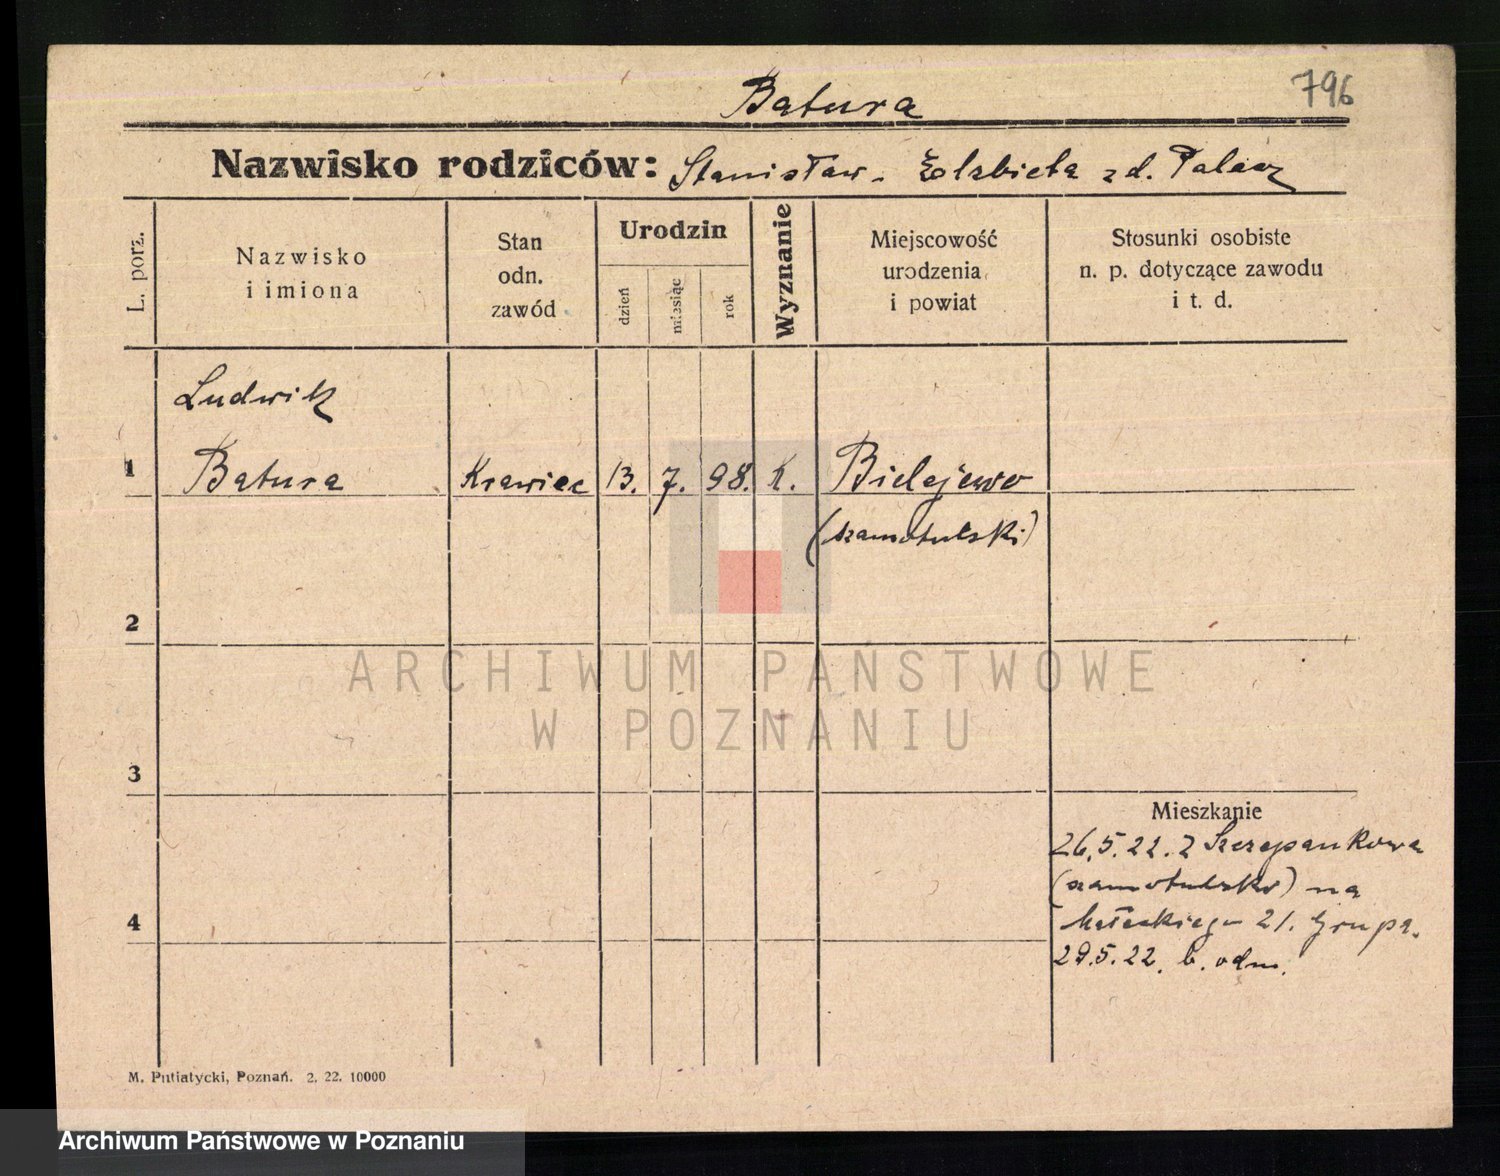 Batura
796
Nazwisko rodziców: Stanisław - Elżbieta zd. Palacz
L. porz.
Nazwisko
i imiona
Stan
odn.
zawód
Urodzin
dzień
miesiąc
rok
Wyznanie
Miejscowość
urodzenia
i powiat
Stosunki osobiste
n. p. dotyczące zawodu
i t. d.
Ludwik
1 Batura Krawiec 13. 7. 98. k. Bielejewo
(szamotulski)
2
ARCHIWUM PAŃSTWOWE
W POZNANIU
3
Mieszkanie
26.5.22. z Szczepankowa
(szamotulsko) na
4 Małeckiego 21. Grupa.
29.5.22. b. odm.
M. Putiatycki, Poznań. 2. 22. 10000
Archiwum Państwowe w Poznaniu